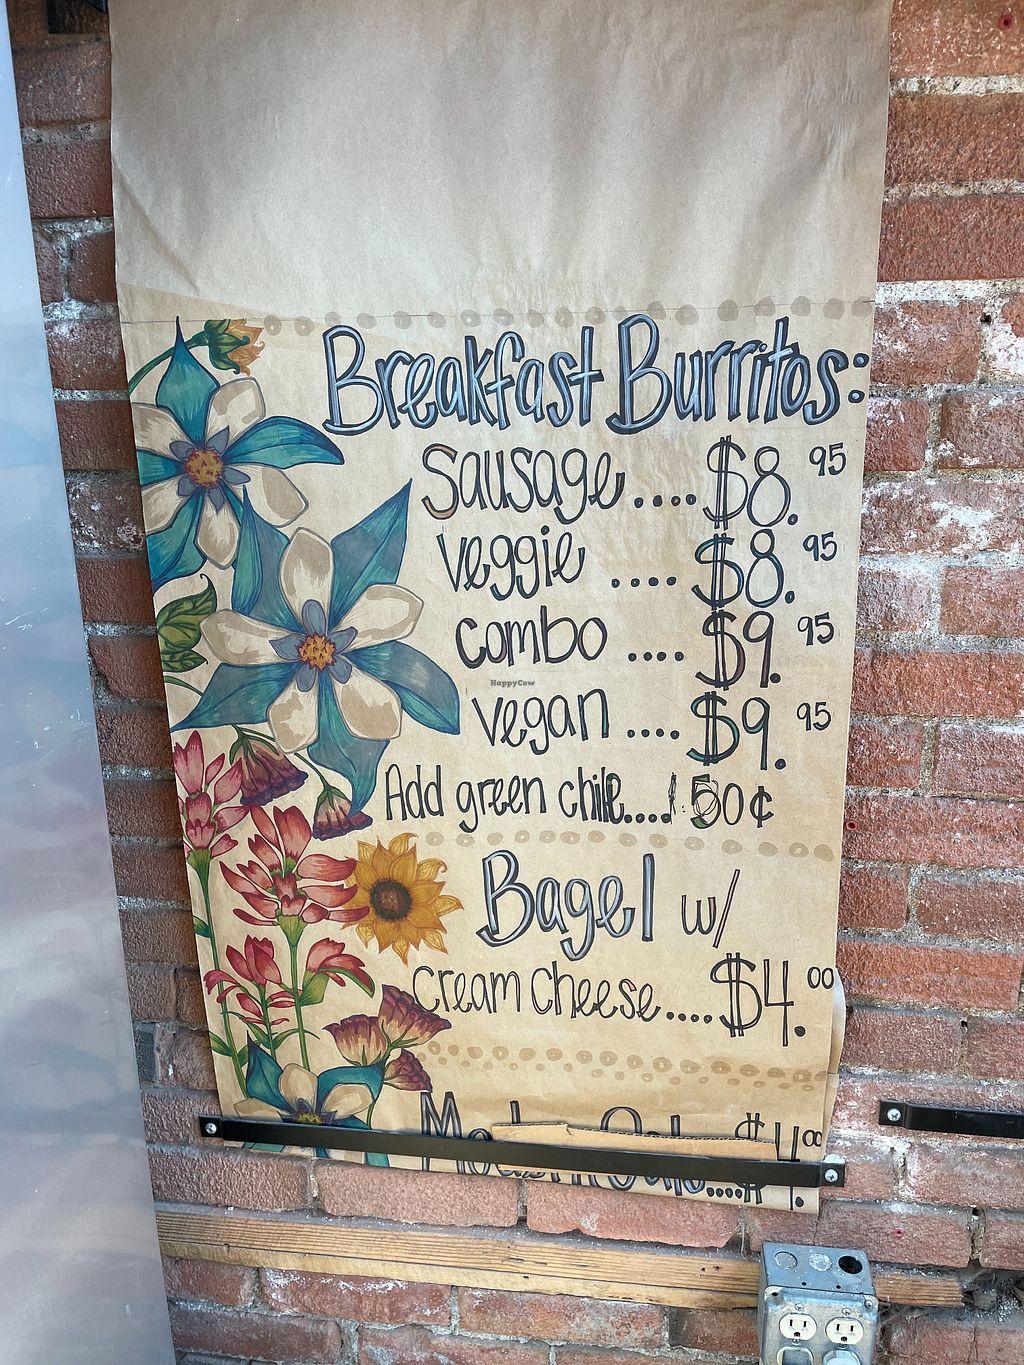 Breakfast Burritos:
Sausage .... $8.95
Veggie .... $8.95
combo .... $9.95
HappyCow
vegan .... $9.95
Add green chile.... 50¢
Bagel w/
cream cheese.... $4.00
.... $4.00